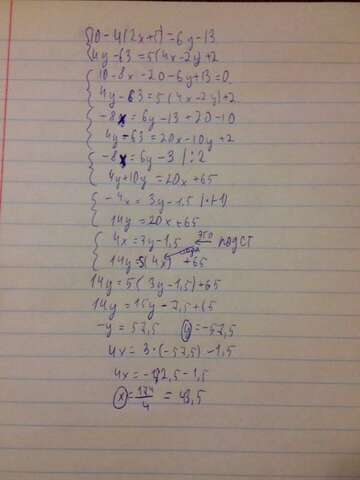 10-4(2x+5)=6y-13
4y-63=5(4x-2y)+2
10-8x-20-6y+13=0
4y-63=5(4x-2y)+2
-8x=6y-13+20-10
4y-63=20x-10y+2
-8x=6y-3 |:2
4y+10y=20x+65
-4x=3y-1,5 |·(-1)
14y=20x+65
4x=3y-1,5 это подст
14y=5(4x)+65 сюда
14y=5(3y-1,5)+65
14y=15y-7,5+65
-y=57,5 y=-57,5
4x=3·(-57,5)-1,5
4x=-172,5-1,5
x=174/4=43,5